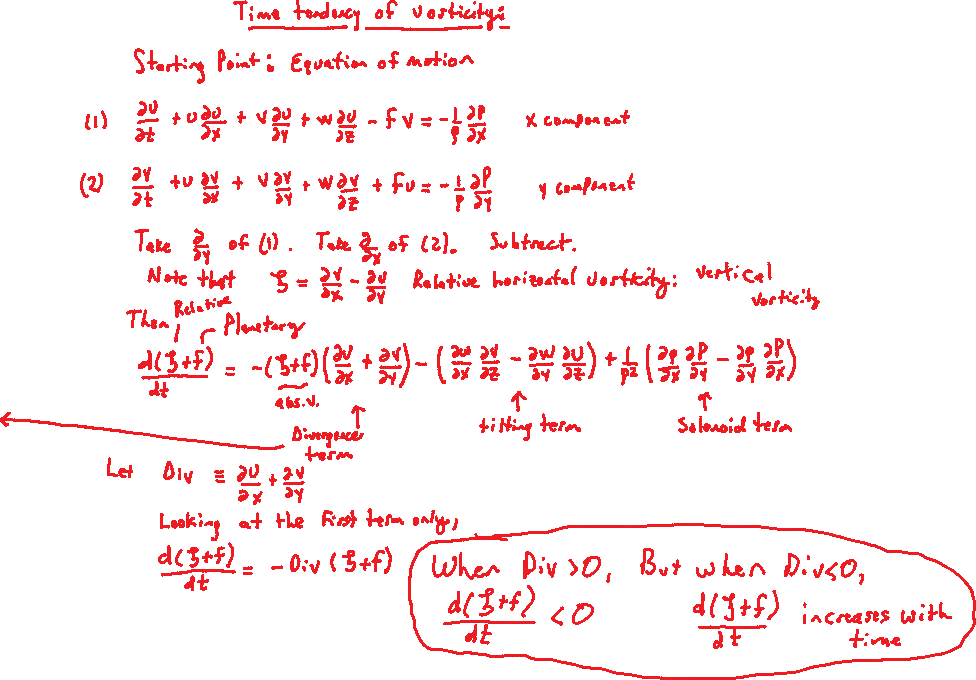 Time tendency of vorticity:
Starting Point: Equation of motion
(1) ∂u/∂t + u ∂u/∂x + v ∂u/∂y + w ∂u/∂z - fv = -1/ρ ∂P/∂x x component
(2) ∂v/∂t + u ∂v/∂x + v ∂v/∂y + w ∂v/∂z + fu = -1/ρ ∂P/∂y y component
Take ∂/∂y of (1). Take ∂/∂x of (2). Subtract.
Note that ζ = ∂v/∂x - ∂u/∂y Relative horizontal vorticity: vertical
vorticity
Then Relative Planetary
d(ζ+f)/dt = -(ζ+f)(∂u/∂x + ∂v/∂y) - (∂w/∂x ∂v/∂z - ∂w/∂y ∂u/∂z) + 1/ρ² (∂ρ/∂x ∂P/∂y - ∂ρ/∂y ∂P/∂x)
abs.v.
Divergence term tilting term Solenoid term
Let Div ≡ ∂u/∂x + ∂v/∂y
Looking at the first term only,
d(ζ+f)/dt = -Div (ζ+f)
When Div >0, But when Div<0,
d(ζ+f)/dt < 0 d(ζ+f)/dt increases with
time